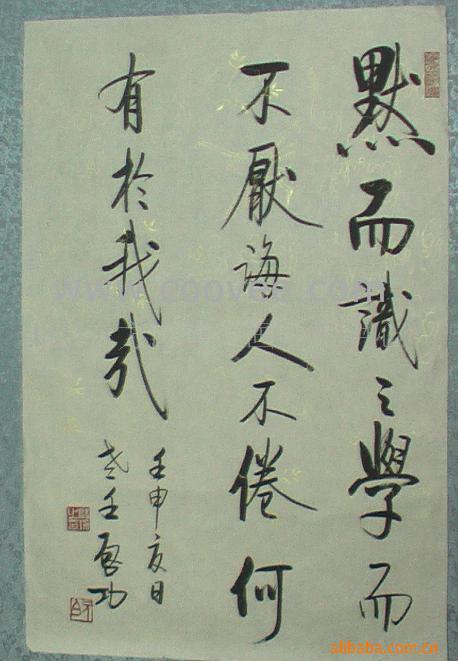 默而識之學而
不厭誨人不倦何
有於我哉
壬申夏日
啓功
www.coovee.com
alibaba.com.cn